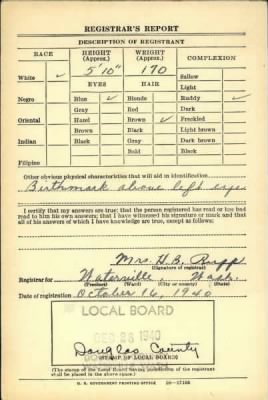 REGISTRAR'S REPORT
DESCRIPTION OF REGISTRANT
RACE HEIGHT (Approx.) WEIGHT (Approx.) COMPLEXION
5' 10" 170
White ✓ Sallow
EYES HAIR Light
Negro Blue ✓ Blonde Ruddy ✓
Gray Red Dark
Oriental Hazel Brown ✓ Freckled
Brown Black Light brown
Indian Black Gray Dark brown
Bald Black
Filipino
Other obvious physical characteristics that will aid in identification
Birthmark above left eye
I certify that my answers are true; that the person registered has read or has had
read to him his own answers; that I have witnessed his signature or mark and that
all of his answers of which I have knowledge are true, except as follows:
Mrs. H. B.
(Signature of registrar)
Registrar for Waterville, Wash.
(Precinct) (Ward) (City or county) (State)
Date of registration October 16, 1940
LOCAL BOARD
1940
Douglas County
(STAMP OF LOCAL BOARD)
(The stamp of the Local Board having jurisdiction of the registrant
shall be placed in the above space.)
U. S. GOVERNMENT PRINTING OFFICE 16-17105